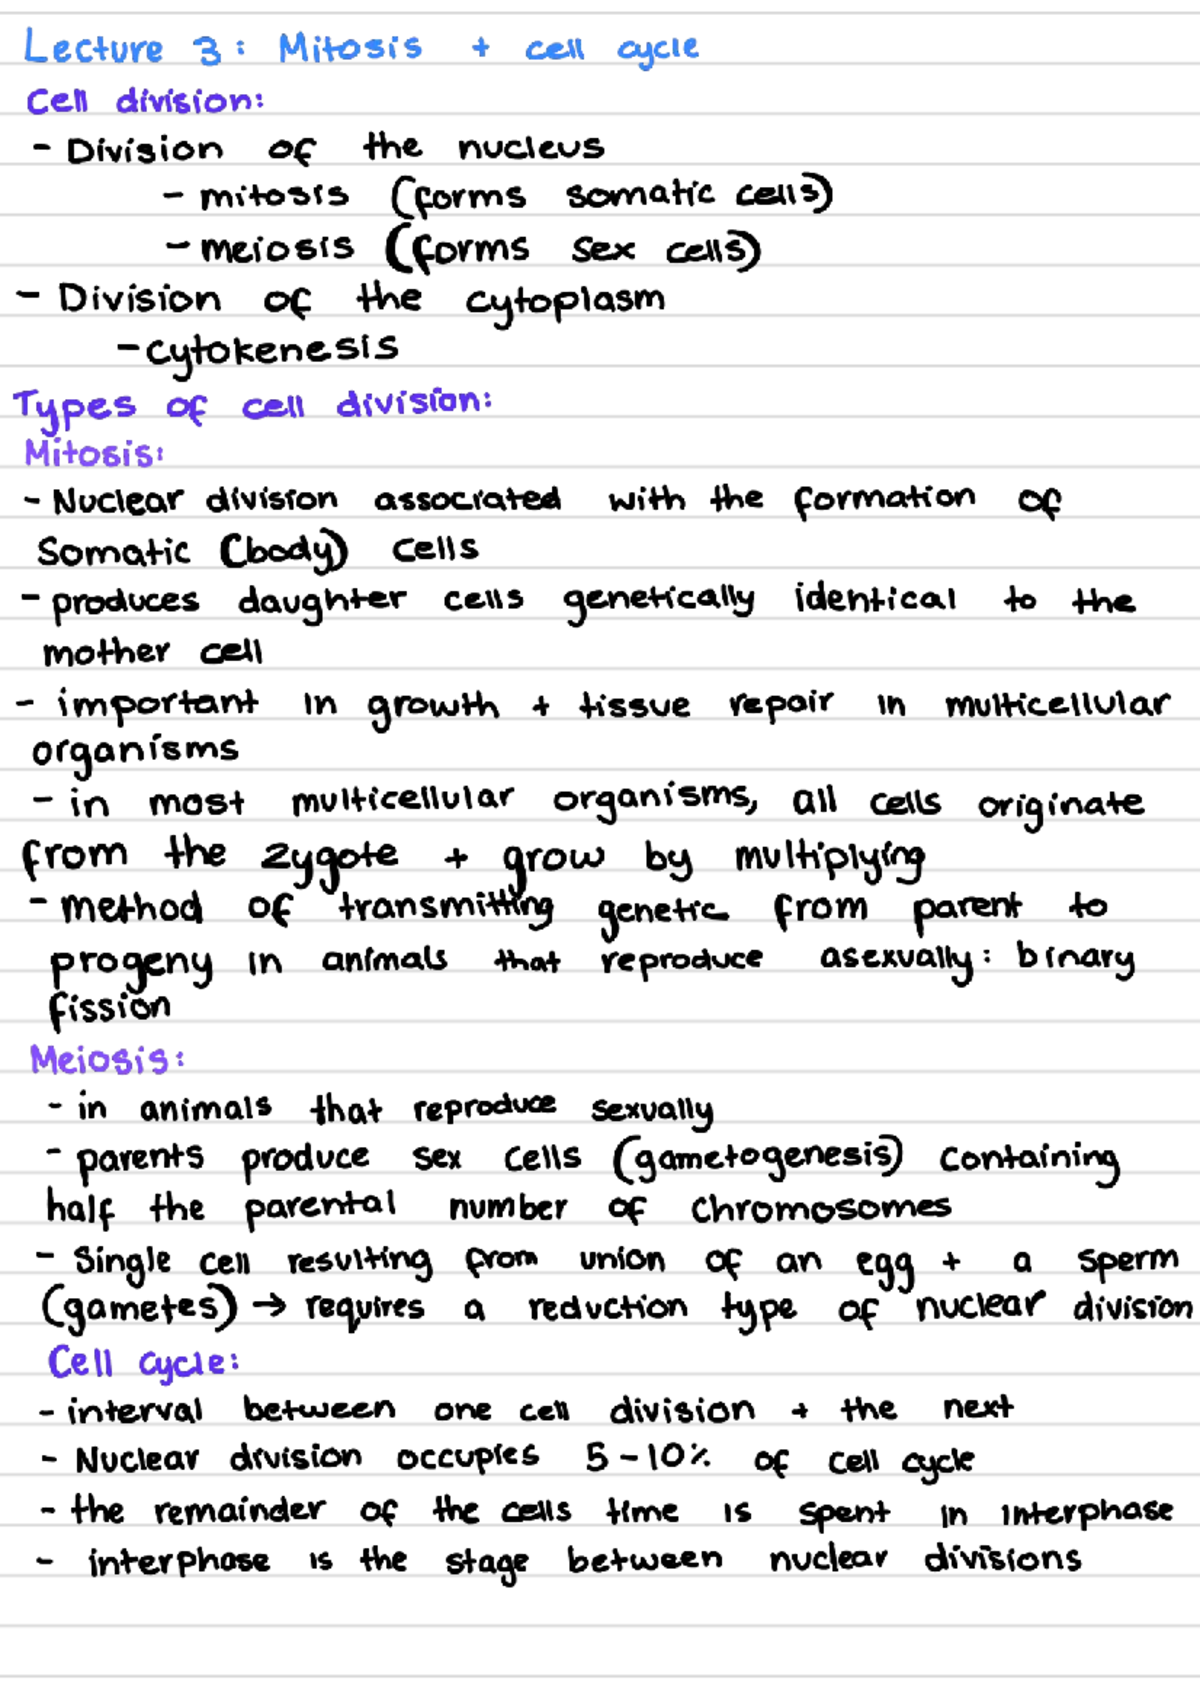 Lecture 3: Mitosis + cell cycle
Cell division:
- Division of the nucleus
- mitosis (forms somatic cells)
- meiosis (forms sex cells)
- Division of the cytoplasm
- cytokenesis
Types of cell division:
Mitosis:
- Nuclear division associated with the formation of
Somatic (body) cells
- produces daughter cells genetically identical to the
mother cell
- important in growth + tissue repair in multicellular
organisms
- in most multicellular organisms, all cells originate
from the zygote + grow by multiplying
- method of transmitting genetic from parent to
progeny in animals that reproduce asexually: binary
fission
Meiosis:
- in animals that reproduce sexually
- parents produce sex cells (gametogenesis) containing
half the parental number of chromosomes
- Single cell resulting from union of an egg + a sperm
(gametes) → requires a reduction type of nuclear division
Cell cycle:
- interval between one cell division + the next
- Nuclear division occupies 5-10% of cell cycle
- the remainder of the cells time is spent in interphase
- interphase is the stage between nuclear divisions